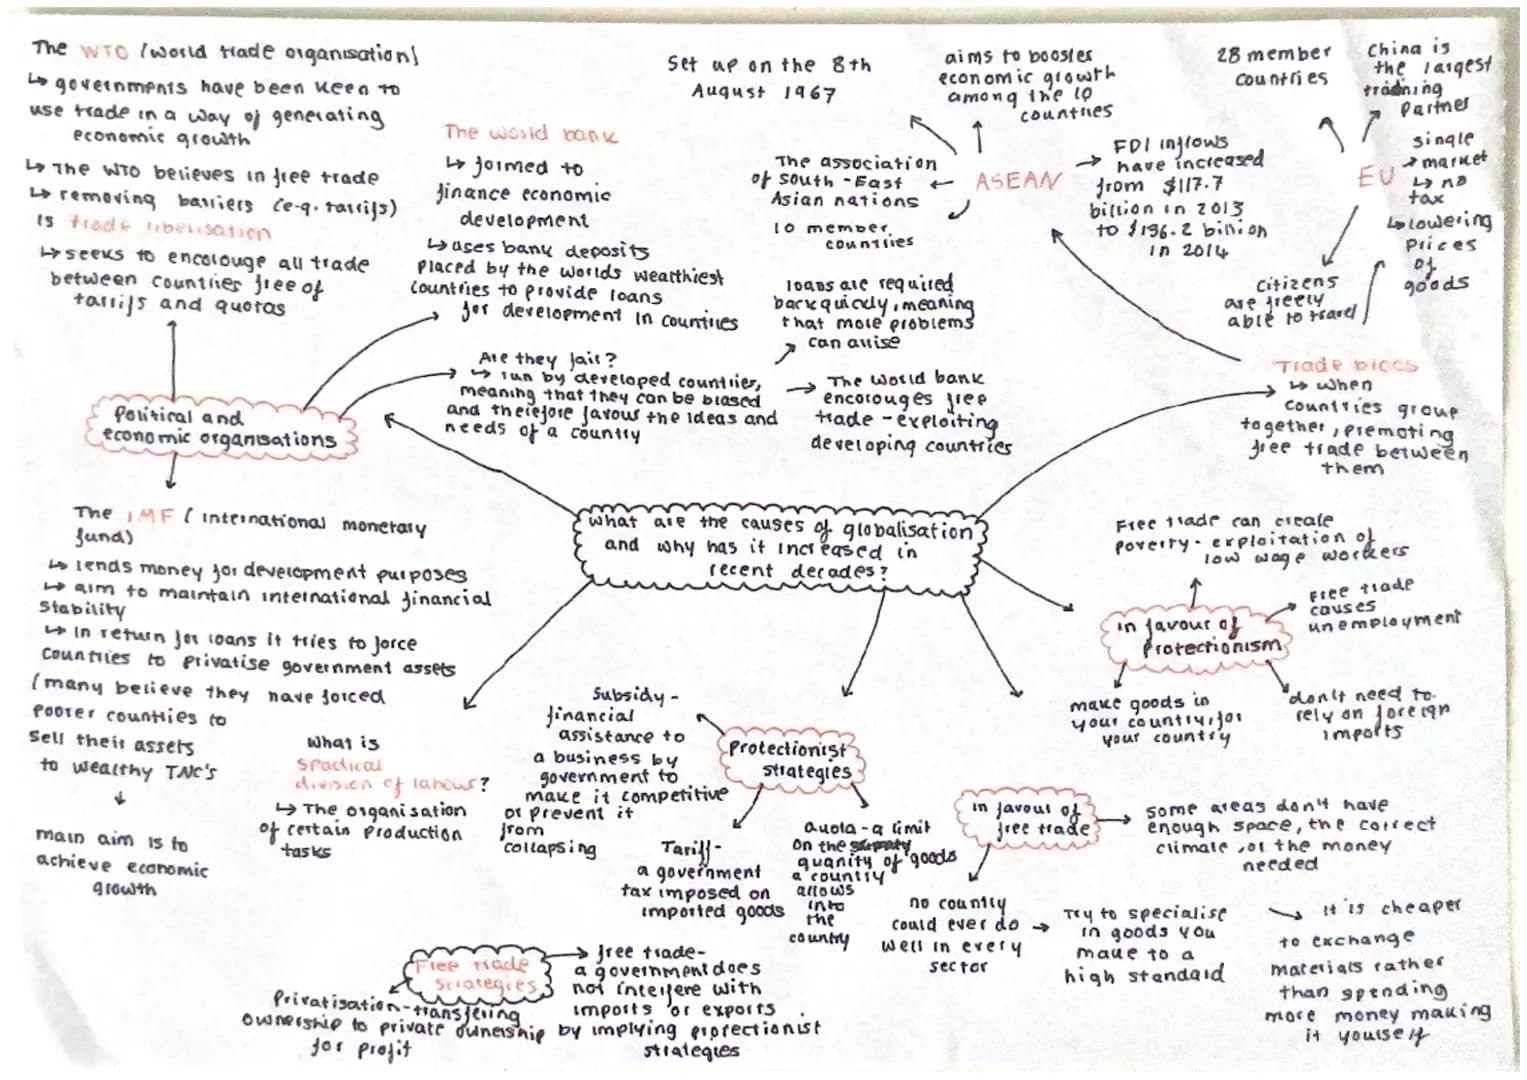 The WTO (world trade organisation)
↳ governments have been keen to
use trade in a way of generating
economic growth
↳ The WTO believes in free trade
↳ removing barriers (e.g. tarrifs)
is trade liberlisation
↳ seeks to encorouge all trade
between countries free of
tarrifs and quotas
The world bank
↳ formed to
finance economic
development
↳ uses bank deposits
placed by the worlds wealthiest
countries to provide loans
for development in countries
Set up on the 8th
August 1967
aims to booster
economic growth
among the 10
countries
The association
of south-East
Asian nations
10 member
countries
ASEAN
FDI inflows
have increased
from $117.7
billion in 2013
to $136.2 billion
in 2014
28 member
countries
China is
the largest
trading
partner
EU
single
market
↳ no
tax
↳ lowering
prices
of
goods
citizens
are freely
able to travel
loans are required
back quickly, meaning
that more problems
can arise
Are they fair?
↳ run by developed countries,
meaning that they can be biased
and therefore favour the ideas and
needs of a country
The world bank
encorouges free
trade - exploiting
developing countries
Trade blocs
↳ when
countries group
together, promoting
free trade between
them
Political and
economic organisations
What are the causes of globalisation
and why has it increased in
recent decades?
The IMF (international monetary
fund)
↳ lends money for development purposes
↳ aim to maintain international financial
stability
↳ in return for loans it tries to force
countries to privatise government assets
(many believe they have forced
poorer countries to
sell their assets
to wealthy TNC's
main aim is to
achieve economic
growth
what is
spadical
division of labour?
↳ The organisation
of certain production
tasks
Subsidy -
financial
assistance to
a business by
government to
make it competitive
or prevent it
from
collapsing
Protectionist
strategies
Tariff -
a government
tax imposed on
imported goods
Quota - a limit
on the
quanity of goods
a country
allows
into
the
country
Free trade can create
poverty - exploitation of
low wage workers
in favour of
protectionism
Free trade
causes
unemployment
make goods in
your country, for
your country
don't need to
rely on foreign
imports
in favour of
free trade
some areas don't have
enough space, the correct
climate, or the money
needed
no country
could ever do
well in every
sector
Try to specialise
in goods you
make to a
high standard
it is cheaper
to exchange
materials rather
than spending
more money making
it yourself
Free trade
strategies
free trade -
a government does
not interfere with
imports or exports
by implying protectionist
strategies
Privatisation - transfering
ownership to private ownership
for profit